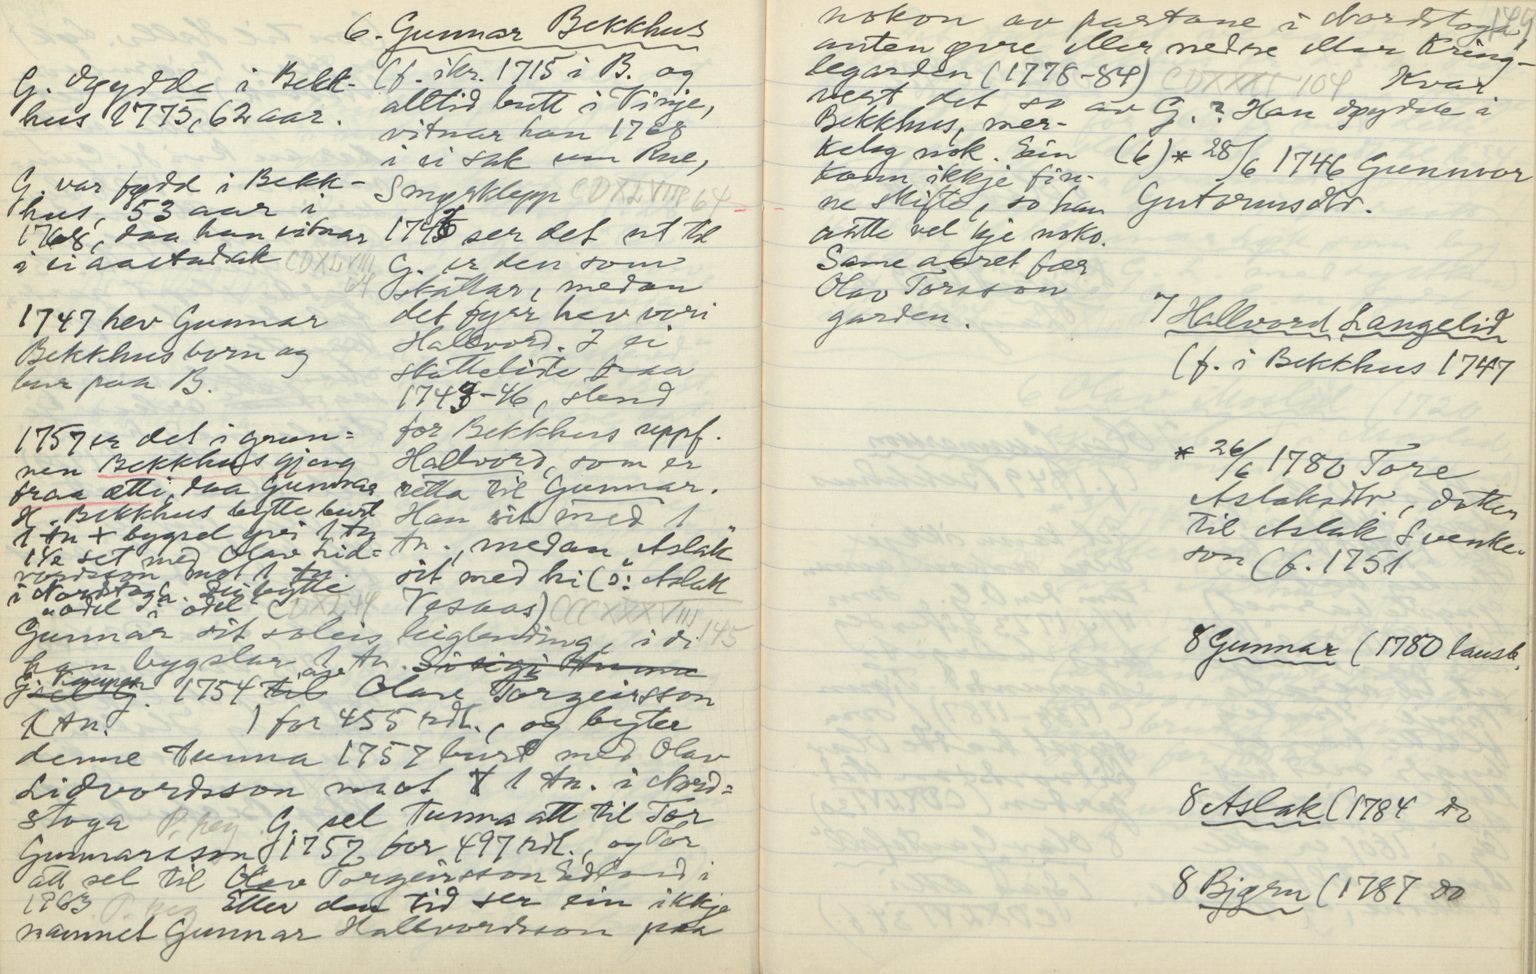 6. Gunnar Bekkhus
G. døydde i Bekk-
hus 1775, 62 aar.
G. var fødd i Bekk-
hus, 53 aar i
1768, daa han vitnar
i ei aastadsak CDXLVIII
64
1747 hev Gunnar
Bekkhus born og
bur paa B.
1757 er det i grun-
nen Bekkhus gjeng
fraa ætti, daa Gunnar
H. Bekkhus bytte burt
1 tn + bygsel yvi 1 tn
set med Olav Lid-
vordsson mot 1 tn
i Nordstoga. Dei bytte
odel i odel
(f. ikr. 1715 i B. og
alltid butt i Vinje,
vitnar han 1768
i ei sak um Rue,
Smørklepp CDXLVIII 64
1743 ser det ut til
G. er den som
skattar, medan
det fyrr hev vori
Hallvord. I ei
skatteliste fraa
1743-46, stend
for Bekkhus uppf.
Hallvord, som er
retta til Gunnar.
Han sit med 1
tn., medan "Aslak"
sit med hi (ɔ: Aslak
Vesaas) CCCXXXVIII 145
Gunnar sit soleis leiglending, i di
han bygslar 1 tn.
G. kauper 1754 av Olav Torgeirsson
1 tn. for 455 rdl., og byter
denne tunna 1757 burt med Olav
Lidvordsson mot 1 tn. i Nord-
stoga G. sel tunna att til Tor
Gunnarsson 1757 for 497 rdl., og Tor
att sel til Olav Torgeirsson Edland i
1763 Etter den tid ser ein ikkje
namnet Gunnar Hallvordsson paa
149
nokon av partane i Nordstoga,
anten øvre eller nedre eller Kring-
legarden (1778-84) CDXXXI 104 Kvar
vert det so av G.? Han døydde i
Bekkhus, mer-
keleg nok. Ein
kann ikkje fin-
ne skifte, so han
aatte vel kje noko.
Same aaret fær
Olav Torsson
garden.
(6) * 28/6 1746 Gunnvor
Gutormsdtr.
7 Hallvord Langelid
(f. i Bekkhus 1747
* 26/6 1780 Tore
Aslaksdtr., dotter
til Aslak Svenke-
son (f. 1751
8 Gunnar (1780 Langeli.
8 Aslak (1784 do
8 Bjørn (1787 do